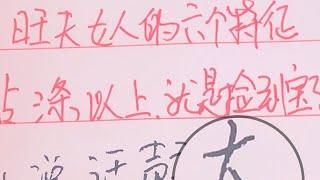 旺夫女人的六个特征
占3条以上,就是捡到宝了
说话
大